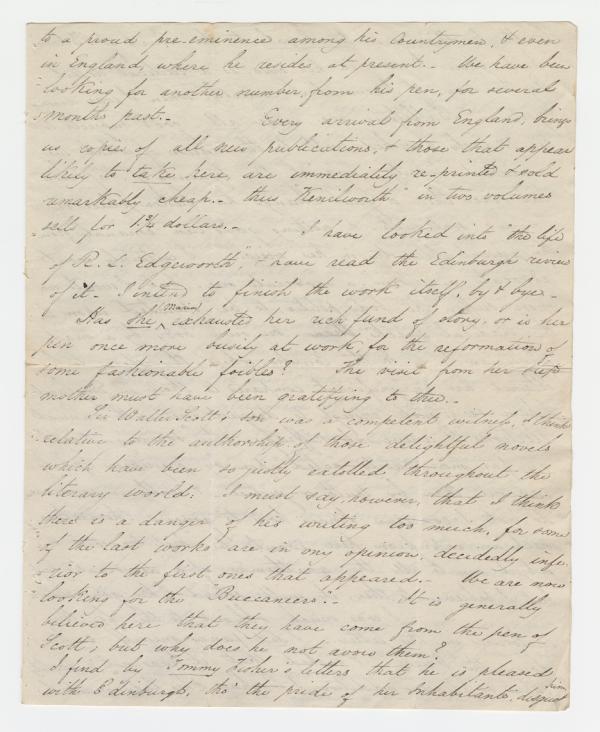 to a proud pre-eminence among his Countrymen, & even
in England, where he resides at present.- We have been
looking for another number, from his pen, for several
months past.- Every arrival from England, brings
us copies of all new publications, & those that appear
likely to take here, are immediately re-printed & sold
remarkably cheap.- thus "Kenilworth" in two volumes
sells for 1.3/4 dollars.- I have looked into "the life
of R. L. Edgeworth", & have read the Edinburgh review
of it- I intend to finish the work itself, by & bye-
Has she, (Maria) exhausted her rich fund of story, or is her
pen once more busily at work, for the reformation of
some fashionable foibles? The visit from her step
mother must have been gratifying to thee.-
Sir Walter Scott's son was a competent witness, I think
relative to the authorship of those delightful novels
which have been so justly extolled throughout the
literary world: I must say, however, that I think
there is a danger of his writing too much, for some
of the last works are in my opinion, decidedly infe-
rior to the first ones that appeared.- We are now
looking for the "Buccaneers".- It is generally
believed here that they have come from the pen of
Scott; but why does he not avow them?
I find by Tommy Fisher's letters that he is pleased
with Edinburgh, tho' the pride of her Inhabitants, disgust him